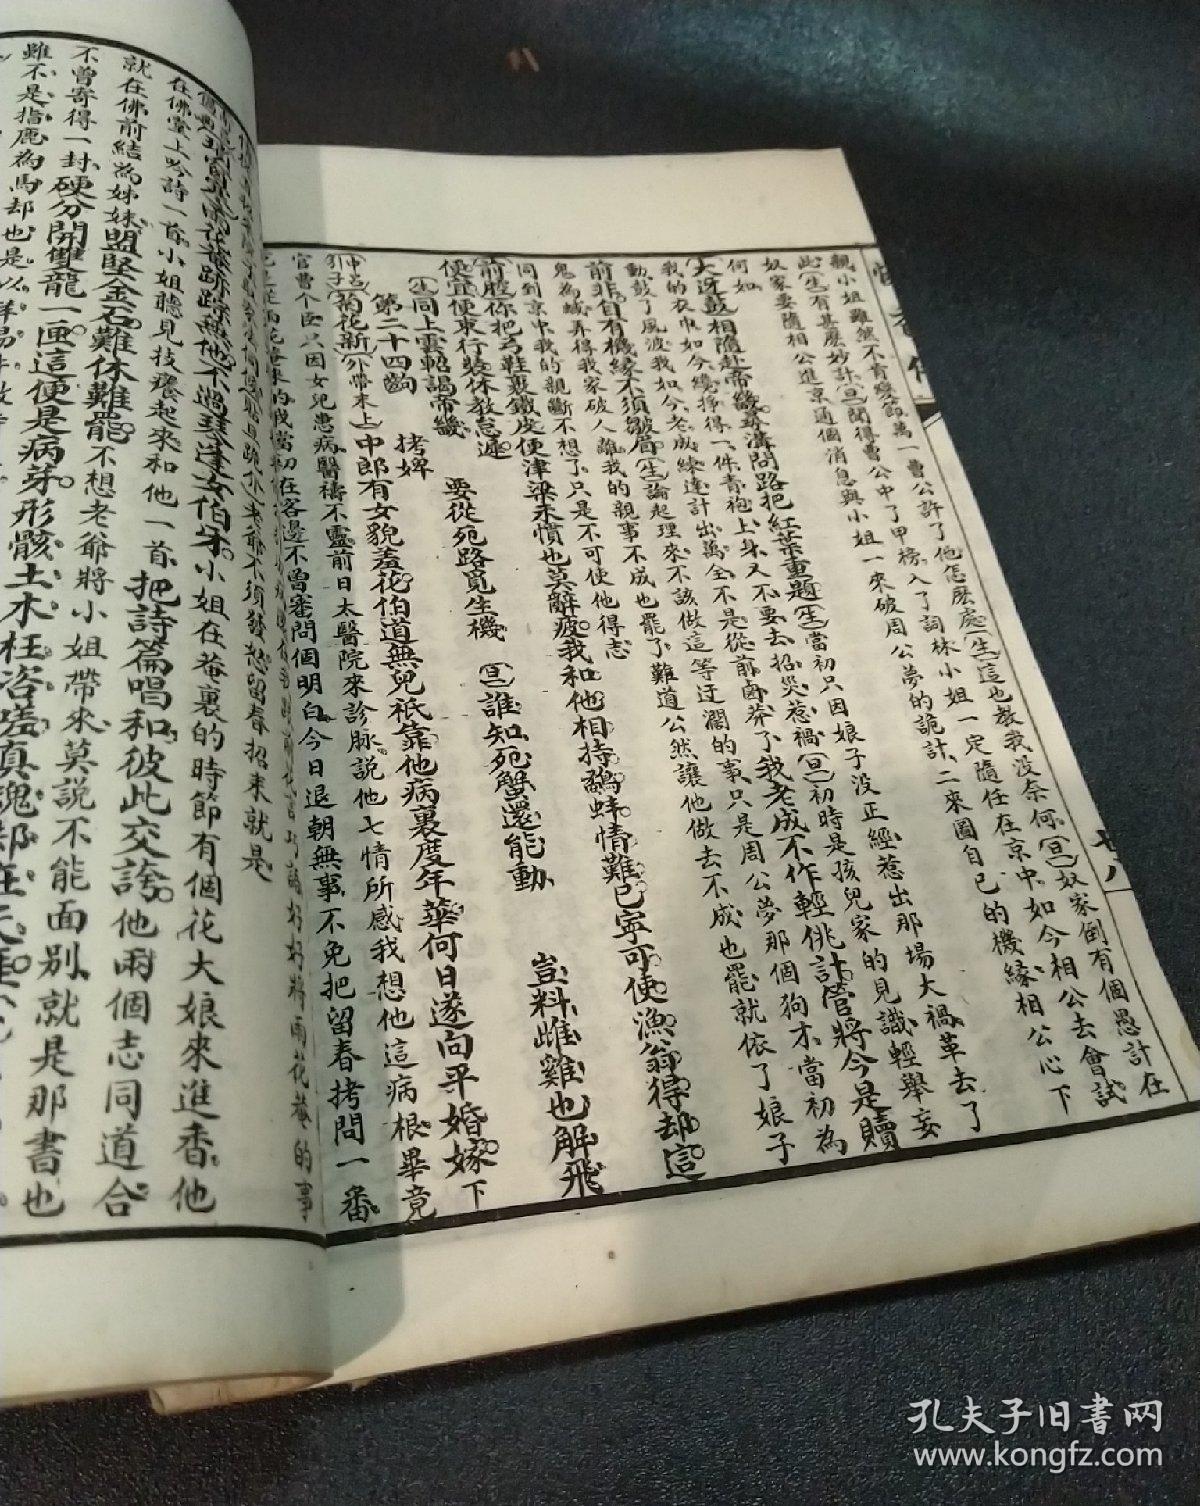 親小姐雖然不肯變節萬一曹公許了他怎麽處(生)這也教我没奈何(旦)奴家倒有個愚計在
此(生)有甚麽妙計(旦)聞得曹公中了甲榜入了詞林小姐一定隨任在京中如今相公去會試
奴家要隨相公進京通個消息與小姐一來破周公夢的詭計二來圖自己的機緣相公心下
何如
(大迓鼓)相隨赴帝畿尋溝問路把紅葉重題(生)當初只因娘子没正經惹出那場大禍革去了
我的衣巾如今纔掙得一件青袍上身又不要去招災惹禍(旦)初時是孩兒家的見識輕舉妄
動鼓了風波我如今老成練達計出萬全不是從前鹵莽了我老成不作輕佻計管將今是贖
前非自有機緣不須皺眉(生)論起理來不該做這等迂濶的事只是周公夢那個狗才當初為
鬼為蜮弄得我家破人離我的親事不成也罷了難道公然讓他做去不成也罷就依了娘子
同到京中我的親斷不想了只是不可使他得志
(前腔)你把弓鞋裹鐵皮便津梁未慣也莫辭疲我和他相持鷸蚌情難已寧可使漁翁得却這
便宜便束行裝休教怠遲
(生)同上雲軺謁帝畿 要從宛路覓生機 (旦)誰知死蟹還能動 豈料雌雞也解飛
第二十四齣 拷婢
(菊花新)(外帶末上)中郎有女貌羞花伯道無兒祇靠他病裏度年華何日遂向平婚嫁下
官曹个臣只因女兒患病醫禱不靈前日太醫院來診脉說他七情所感我想他這病根畢竟
在客邊不曾審問個明白今日退朝無事不免把留春拷問一番
好好將雨花菴的事
不須發怒留春招來就是
不過琴逢女伯牙小姐在菴裏的時節有個花大娘來進香他
在佛堂上吟詩一首小姐聽見技癢起來和他一首把詩篇唱和彼此交誇他兩個志同道合
就在佛前結為姊妹盟堅金石難休難罷不想老爺將小姐帶來莫說不能面別就是那書也
不曾寄得一封硬分開雙龍一匣這便是病芽形骸土木枉咨嗟真魂却在天涯
雖不是指鹿為馬却也是以羊易牛
孔夫子旧書网
www.kongfz.com